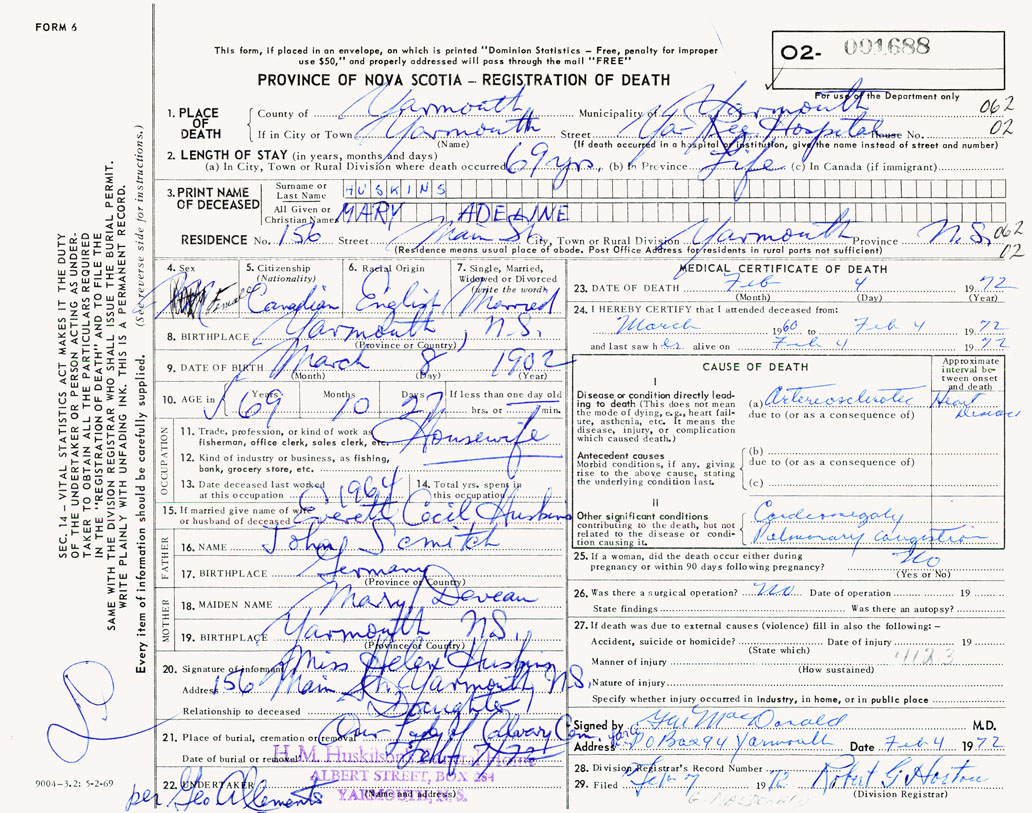 FORM 6
This form, if placed in an envelope, on which is printed "Dominion Statistics – Free, penalty for improper
use $50," and properly addressed will pass through the mail "FREE"
PROVINCE OF NOVA SCOTIA – REGISTRATION OF DEATH
O2- 001688
For use of the Department only
062
02
1. PLACE OF DEATH
County of Yarmouth Municipality of Yarmouth
If in City or Town Yarmouth Street Yar Reg Hospital House No.
(Name) (If death occurred in a hospital or institution, give the name instead of street and number)
2. LENGTH OF STAY (in years, months and days)
(a) In City, Town or Rural Division where death occurred 69 yrs. (b) In Province Life (c) In Canada (if immigrant)
3. PRINT NAME OF DECEASED
Surname or Last Name HUSKINS
All Given or Christian Names MARY ADELINE
RESIDENCE No. 156 Street Main St. City, Town or Rural Division Yarmouth Province N.S. 062
02
(Residence means usual place of abode. Post Office Address for residents in rural parts not sufficient)
4. Sex Female
5. Citizenship (Nationality) Canadian
6. Racial Origin English
7. Single, Married, Widowed or Divorced (write the word) Married
8. BIRTHPLACE Yarmouth, N.S.
(Province or Country)
9. DATE OF BIRTH March 8 1902
(Month) (Day) (Year)
10. AGE in Years 69 Months 10 Days 27 If less than one day old
hrs. or min.
OCCUPATION
11. Trade, profession, or kind of work as fisherman, office clerk, sales clerk, etc. Housewife
12. Kind of industry or business, as fishing, bank, grocery store, etc.
13. Date deceased last worked at this occupation 1964
14. Total yrs. spent in this occupation
15. If married give name of wife or husband of deceased Everett Cecil Huskins
FATHER
16. NAME John Scmitch
17. BIRTHPLACE Germany
(Province or Country)
MOTHER
18. MAIDEN NAME Mary Deveau
19. BIRTHPLACE Yarmouth N.S.
(Province or Country)
20. Signature of informant Miss Helen Huskins
Address 156 Main St. Yarmouth, N.S.
Relationship to deceased Daughter
21. Place of burial, cremation or removal Our Lady of Calvary Cem.
Date of burial or removal Feb 7/72
22. UNDERTAKER
(Name and address)
H.M. Huskilson
ALBERT STREET, BOX 284
YARMOUTH, N.S.
per Geo A Clements
MEDICAL CERTIFICATE OF DEATH
23. DATE OF DEATH Feb 4 1972
(Month) (Day) (Year)
24. I HEREBY CERTIFY that I attended deceased from:
March 1960 to Feb 4 1972
and last saw her alive on Feb 4 1972
CAUSE OF DEATH
Approximate interval between onset and death
I
Disease or condition directly leading to death (This does not mean the mode of dying, e.g., heart failure, asthenia, etc. It means the disease, injury, or complication which caused death.)
(a) Arteriosclerotic Heart Disease
due to (or as a consequence of)
Antecedent causes
Morbid conditions, if any, giving rise to the above cause, stating the underlying condition last.
(b)
due to (or as a consequence of)
(c)
II
Other significant conditions contributing to the death, but not related to the disease or condition causing it.
Cardiomegaly
Pulmonary congestion
25. If a woman, did the death occur either during
pregnancy or within 90 days following pregnancy? No
(Yes or No)
26. Was there a surgical operation? No Date of operation 19
State findings Was there an autopsy?
27. If death was due to external causes (violence) fill in also the following: –
Accident, suicide or homicide? Date of injury 19
(State which)
4123
Manner of injury
(How sustained)
Nature of injury
Specify whether injury occurred in industry, in home, or in public place
Signed by MacDonald M.D.
Address P O Box 94 Yarmouth Date Feb 4 1972
28. Division Registrar's Record Number
29. Filed Feb 7 1972 Robert G. Horton
(Division Registrar)
G MACDONALD
SEC. 14 – VITAL STATISTICS ACT MAKES IT THE DUTY
OF THE UNDERTAKER OR PERSON ACTING AS UNDER-
TAKER TO OBTAIN ALL THE PARTICULARS REQUIRED
IN THE "REGISTRATION OF DEATH" AND TO FILE THE
SAME WITH THE DIVISION REGISTRAR WHO SHALL ISSUE THE BURIAL PERMIT.
WRITE PLAINLY WITH UNFADING INK. THIS IS A PERMANENT RECORD.
Every item of information should be carefully supplied. (See reverse side for instructions.)
9004-3.2: 5-2-69